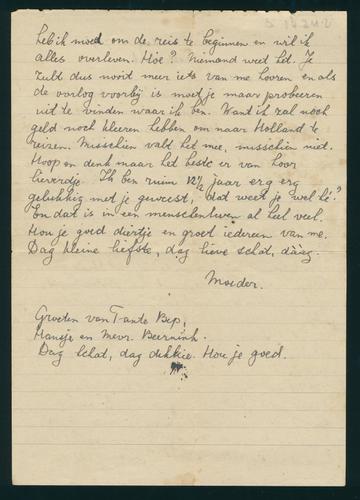 heb ik moed om de reis te beginnen en wil ik
alles overleven. Hoe? Niemand weet het. Je
zult dus nooit meer iets van me hooren en als
de oorlog voorbij is moet je maar probeeren
uit te vinden waar ik ben. Want ik zal noch
geld noch kleeren hebben om naar Holland te
reizen. Misschien valt het mee, misschien niet.
Hoop en denk maar het beste er van hoor
lieverdje. Ik ben ruim 12½ jaar erg erg
gelukkig met je geweest, dat weet je wel hè?
En dat is in een menschenleven al heel veel.
Hou je goed diertje en groet iedereen van me.
Dag kleine liefste, dag lieve schat, dààg.
Moeder.
Groeten van Tante Bep,
Hansje en Mevr. Beernink.
Dag schat, dag dikkie. Hou je goed.